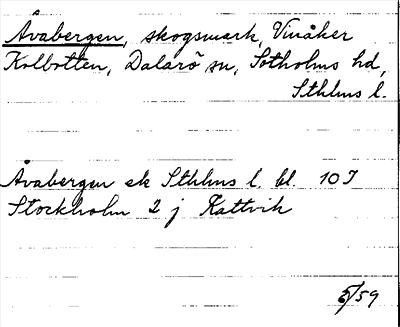 Åvabergen, skogsmark, Vinåker
Kolbotten, Dalarö sn, Sotholms hd,
Sthlms l.
Åvabergen ek Sthlms l. bl. 107
Stockholm 2 j Kattvik
5/59